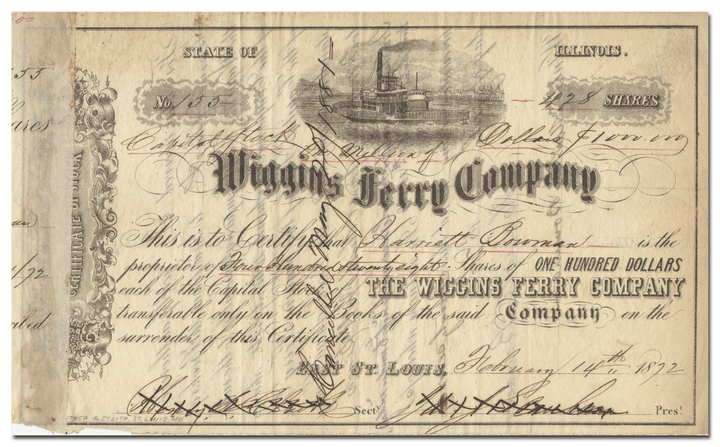 STATE OF ILLINOIS.
No. 155 428 SHARES
Capital Stock One Million of Dollars $1000.000
Wiggins Ferry Company
This is to Certify that Harriett Bowman is the
proprietor of Four Hundred & twenty eight Shares of ONE HUNDRED DOLLARS
each of the Capital Stock of THE WIGGINS FERRY COMPANY
transferable only on the Books of the said Company on the
surrender of this Certificate.
EAST ST. LOUIS, February 14th 1872
Sect. Pres!
CERTIFICATE OF STOCK
Cancelled May 1881
155
ares
an
1/72